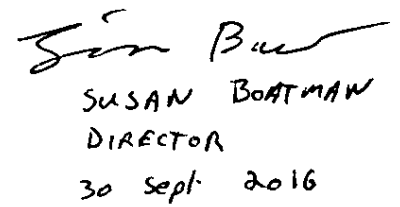 SUSAN BOATMAN
DIRECTOR
30 Sept 2016